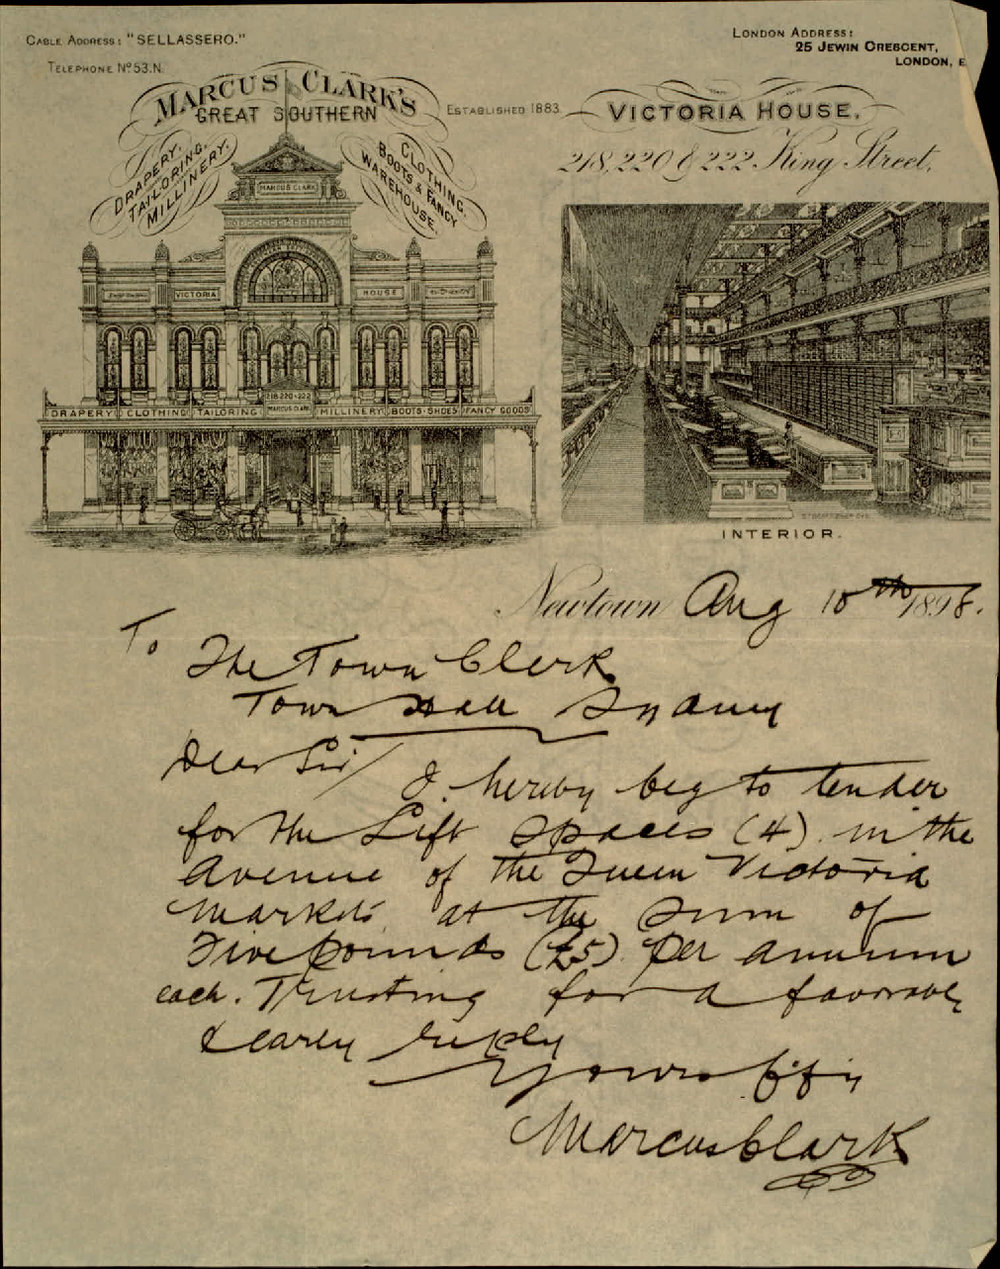 CABLE ADDRESS: "SELLASSERO."
TELEPHONE Nº 53.N.
LONDON ADDRESS:
25 JEWIN CRESCENT,
LONDON, E
MARCUS CLARK'S
GREAT SOUTHERN
DRAPERY,
TAILORING,
MILLINERY,
CLOTHING,
BOOTS & FANCY
WAREHOUSE.
ESTABLISHED 1883.
VICTORIA HOUSE,
218, 220 & 222 King Street,
MARCUS CLARK
VICTORIA
HOUSE
218·220·222
DRAPERY CLOTHING TAILORING MARCUS CLARK MILLINERY BOOTS·SHOES FANCY GOODS
INTERIOR.
Newtown Aug 10th 1898.
To
The Town Clerk
Town Hall Sydney
Dear Sir/
I hereby beg to tender
for the Lift Spaces (4) in the
Avenue of the Queen Victoria
Markets at the sum of
Five pounds (£5) per annum
each. Trusting for a favorable
& early reply
Yours ffy
Marcus Clark